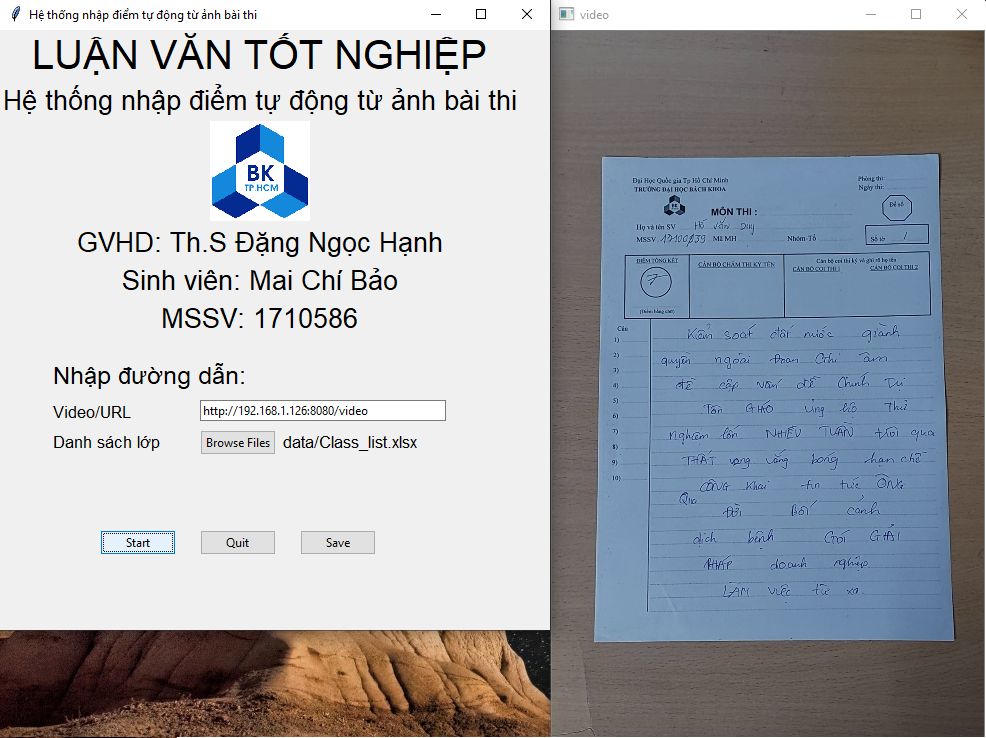 Hệ thống nhập điểm tự động từ ảnh bài thi
LUẬN VĂN TỐT NGHIỆP
Hệ thống nhập điểm tự động từ ảnh bài thi
BK
TP.HCM
GVHD: Th.S Đặng Ngọc Hạnh
Sinh viên: Mai Chí Bảo
MSSV: 1710586
Nhập đường dẫn:
Video/URL http://192.168.1.126:8080/video
Danh sách lớp Browse Files data/Class_list.xlsx
Start Quit Save
video
Đại Học Quốc gia Tp Hồ Chí Minh
TRƯỜNG ĐẠI HỌC BÁCH KHOA
Phòng thi:
Ngày thi:
BK
Đề số
MÔN THI :
Họ và tên SV Hồ Văn Duy
MSSV Mã MH Nhóm-Tổ
Số tờ 1
ĐIỂM TỔNG KẾT
7
(Điểm bằng chữ)
CÁN BỘ CHẤM THI KÝ TÊN
Cán bộ coi thi ký và ghi rõ họ tên
CÁN BỘ COI THI 1 CÁN BỘ COI THI 2
Câu
1)
2)
3)
4)
5)
6)
7)
8)
9)
10)
Kiểm soát đất nước giành
quyền ngoài đoan Ghi âm
đề cập vấn đề Chính Tự
Tôn GIÁO ủng hộ Thử
Nghiệm lớn NHIỀU TUẦN trôi qua
THẤT vọng vắng bóng hạn chế
CÔNG khai tin tức ÔNG
Qua đời Bối cảnh
dịch bệnh Gói GIẢI
PHÁP doanh nghiệp
LÀM việc từ xa.